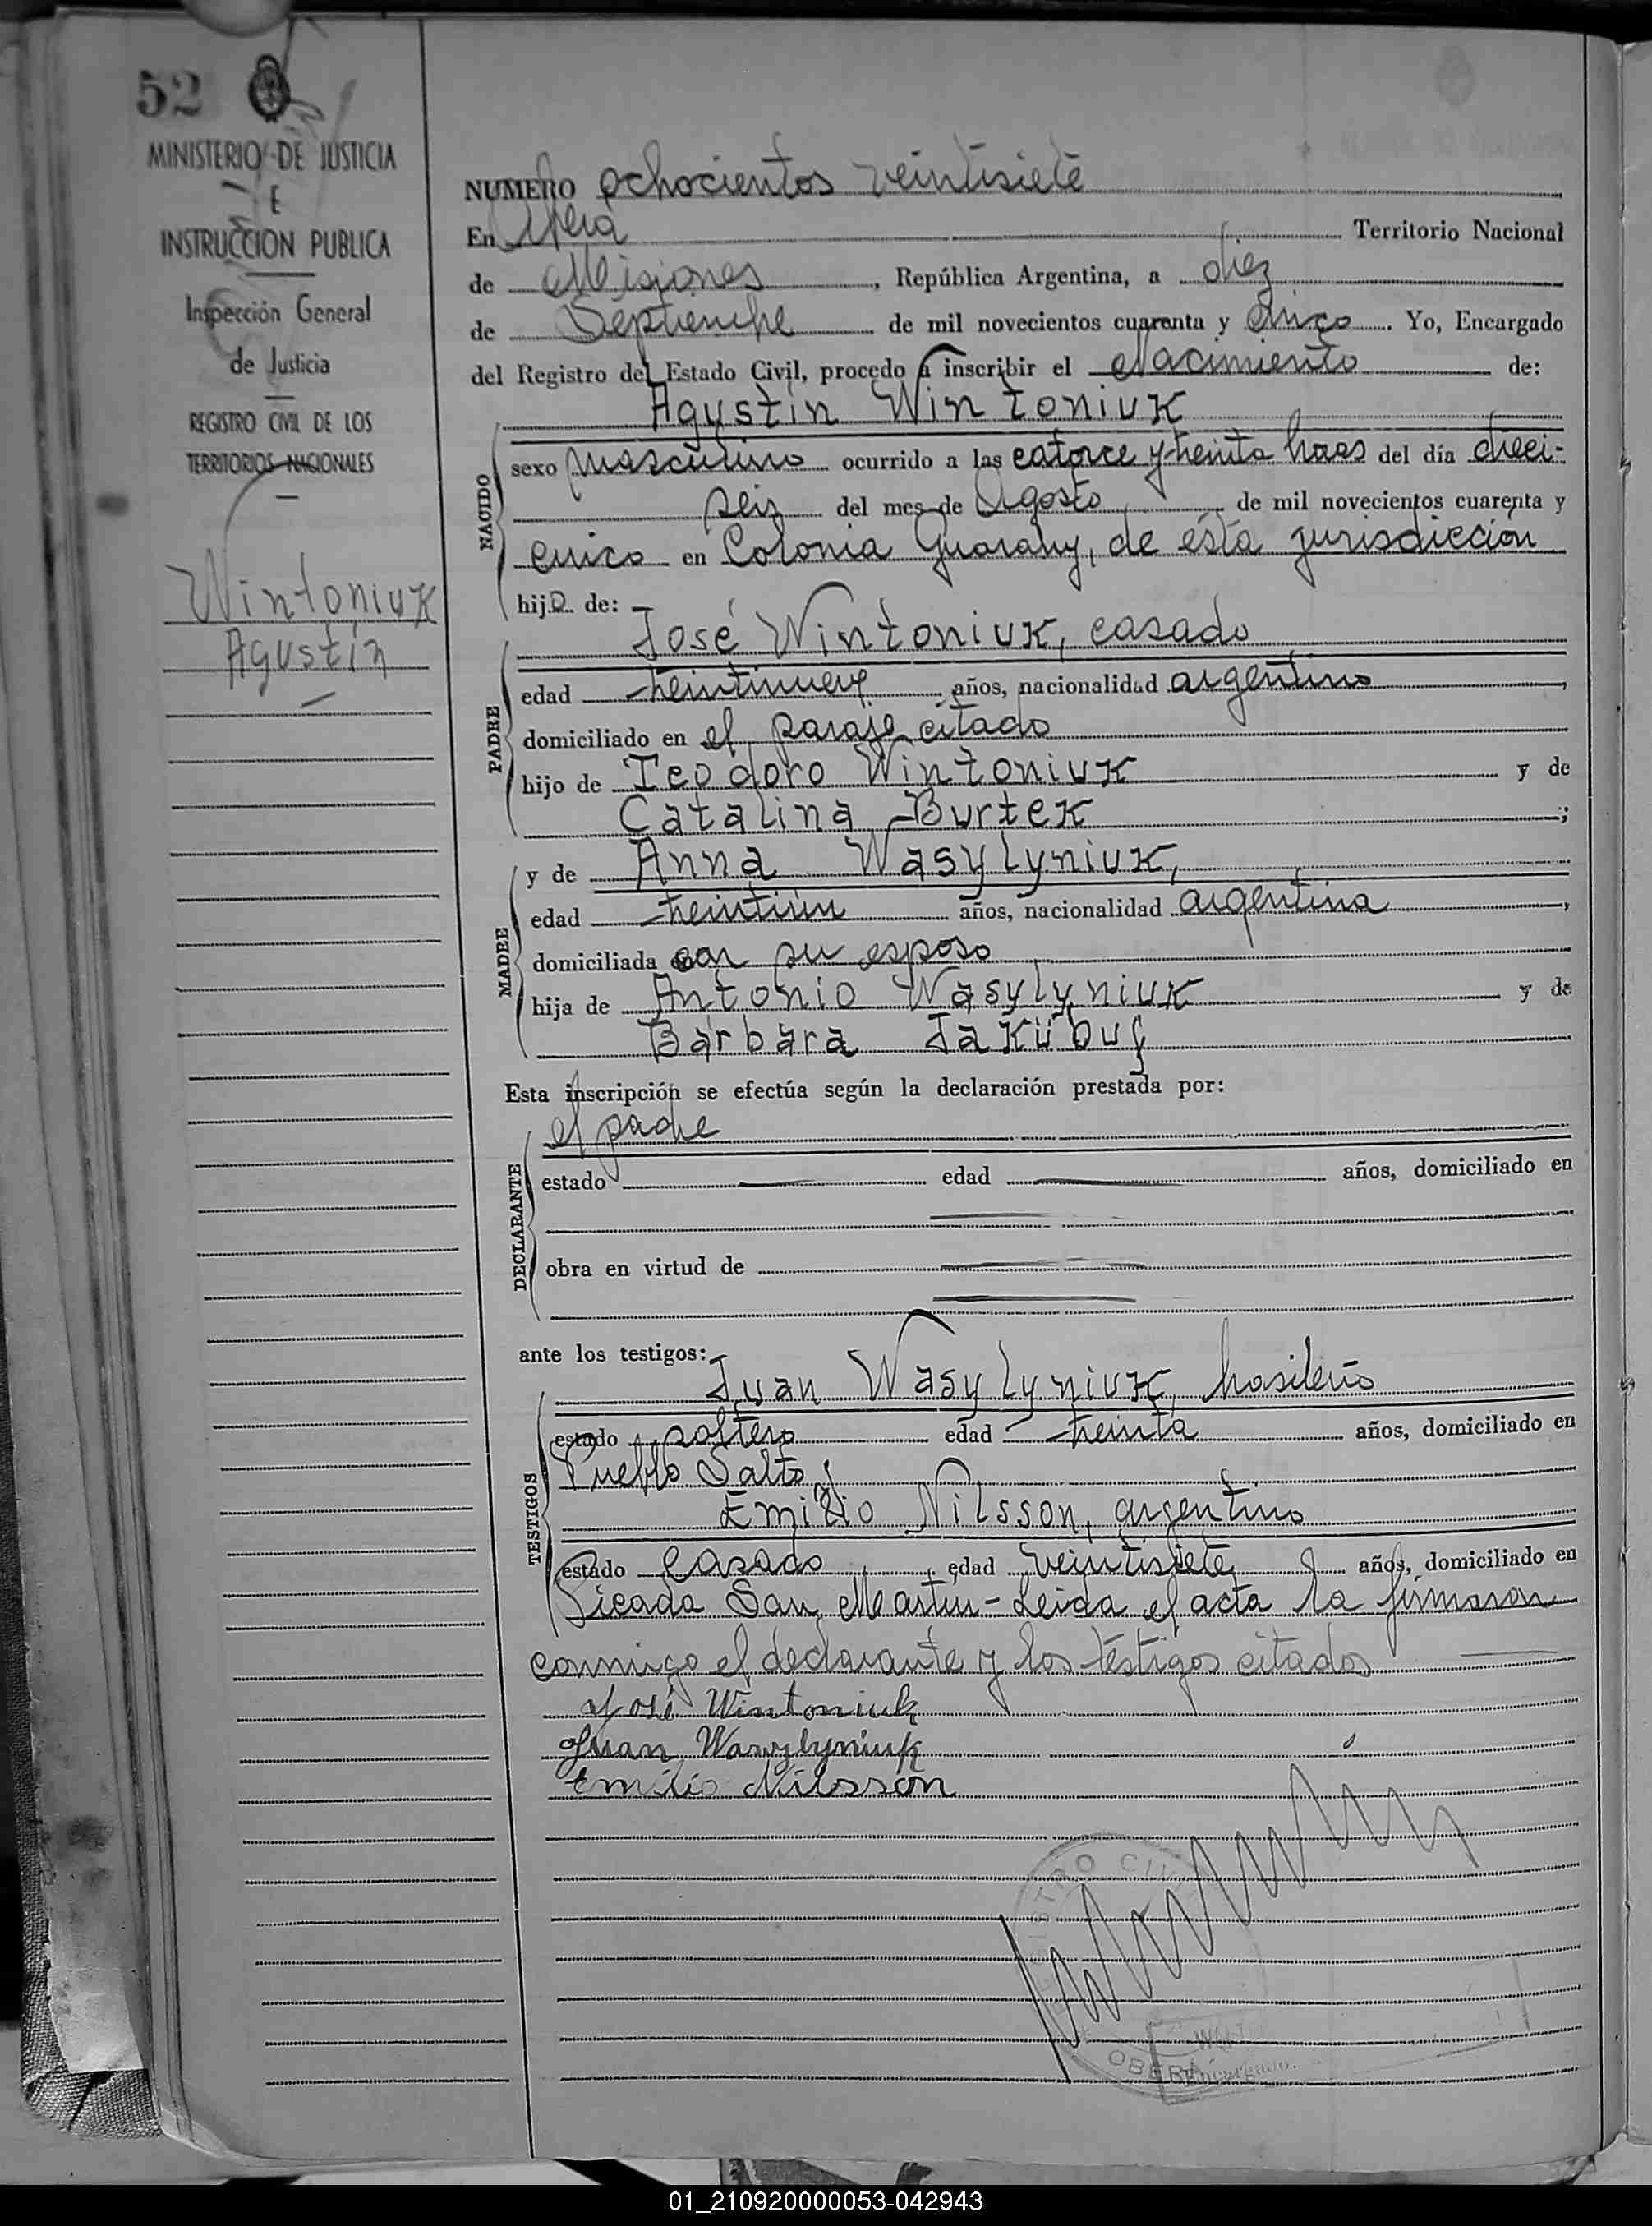 52
MINISTERIO DE JUSTICIA
E
INSTRUCCION PUBLICA
Inspección General
de Justicia
REGISTRO CIVIL DE LOS
TERRITORIOS NACIONALES
Wintoniuk
Agustín
NUMERO ochocientos veintisiete
En Oberá Territorio Nacional
de Misiones, República Argentina, a diez
de Septiembre de mil novecientos cuarenta y cinco. Yo, Encargado
del Registro del Estado Civil, procedo a inscribir el Nacimiento de:
Agustín Wintoniuk
NACIDO
sexo masculino ocurrido a las catorce y treinta horas del día dieci-
seis del mes de Agosto de mil novecientos cuarenta y
cinco en Colonia Guarany, de ésta jurisdicción
hijo de:
PADRE
José Wintoniuk, casado
edad treintinueve años, nacionalidad argentino
domiciliado en el paraje citado
hijo de Teodoro Wintoniuk y de
Catalina Burtek;
MADRE
y de Anna Wasylyniuk,
edad treintiún años, nacionalidad argentina,
domiciliada con su esposo
hija de Antonio Wasylyniuk y de
Bárbara
Esta inscripción se efectúa según la declaración prestada por:
el padre
DECLARANTE
estado edad años, domiciliado en
obra en virtud de
ante los testigos:
TESTIGOS
Juan Wasylyniuk, brasileño
estado soltero edad treinta años, domiciliado en
Pueblo Salto;
Emilio Nilsson, argentino
estado casado, edad veintisiete años, domiciliado en
Picada San Martín - Leída el acta la firmaron
conmigo el declarante y los testigos citados
José Wintoniuk
Juan Wasylyniuk
Emilio Nilsson
OBERÁ
Encargado.
01_210920000053-042943